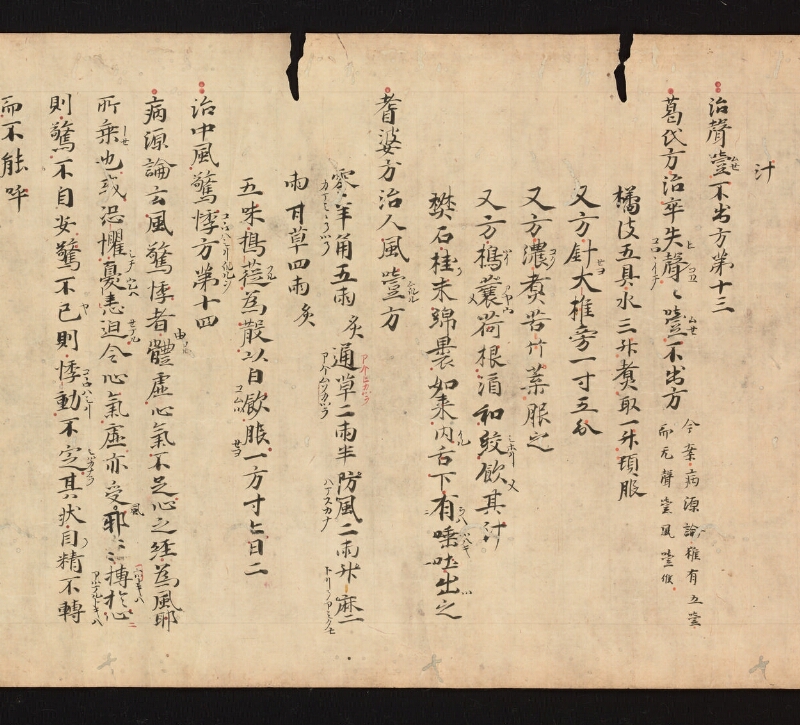 汁
治聲噎不出方第十三
葛氏方治卒失聲々噎不出方 今案病源論雖有五噎
而无聲噎風噎候
橘皮五具水三升煑取一升頓服
又方針大椎旁一寸五分
又方濃煑苦竹葉服之
又方搗蘘荷根酒和絞飲其汁
樊石桂末綿裹如棗内舌下有唾吐出之
耆婆方治人風噎方
零羊角五兩炙 通草二兩半 防風二兩 升麻二
兩 甘草四兩炙
五味搗蓰為散以白飲服一方寸匕日二
治中風驚悸方第十四
病源論云風驚悸者體虚心氣不足心之經為風邪
所乗也或恐懼憂恚迫令心氣虚亦受風邪々搏於心
則驚不自安驚不已則悸動不定其状目精不轉
而不能呼